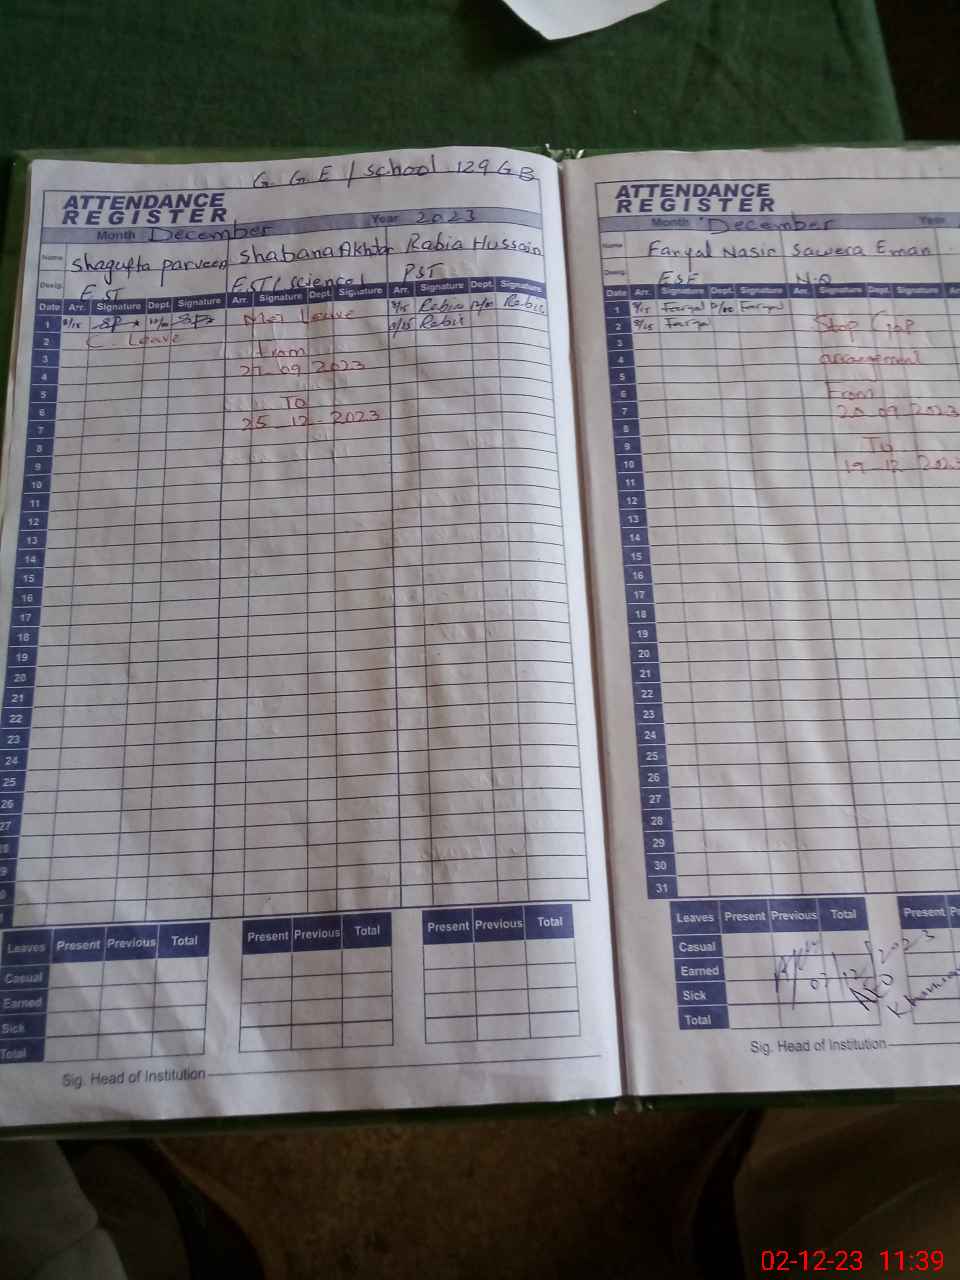 G. G. E / school 129 GB
ATTENDANCE
REGISTER
Month December Year 2023
Name Shagufta parveen Shabana Akhtar Rabia Hussain
Desig. EST EST/science PST
Date Arr. Signature Dept. Signature Arr. Signature Dept. Signature Arr. Signature Dept. Signature
1 8/15 SP SP Leave 8/15 Rabia Rabia
2 C. Leave 8/15 Rabia
3 From
4 09 2023
5
6 To
7 25_12-2023
8
9
10
11
12
13
14
15
16
17
18
19
20
21
22
23
24
25
26
27
Leaves Present Previous Total Present Previous Total Present Previous Total
Casual
Earned
Sick
Total
Sig. Head of Institution
ATTENDANCE
REGISTER
Month December Year
Name Faryal Nasir Sawera Eman
Desig. ESE
Date Arr. Signature Dept. Signature Arr. Signature Dept. Signature
1 Faryal Faryal
2 8/15 Faryal Stop Gap
3
4 arrangement
5
6 From
7 20_09_2023
8
9 To
10 19_12_2023
11
12
13
14
15
16
17
18
19
20
21
22
23
24
25
26
27
28
29
30
31
Leaves Present Previous Total Present
Casual
Earned
Sick
Total
/12/2023
AEO
Sig. Head of Institution
02-12-23 11:39